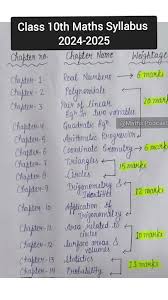 Class 10th Maths Syllabus
2024-2025
Chapter no. Chapter Name Weightage
Chapter - 1 Real Numbers → 6 marks
Chapter - 2 Polynomials
Chapter - 3 Pair of linear Eqn in two variables 20 marks
Chapter - 4 Quadratic Eqn
Maths Podcast
Chapter - 5 Arithmetic Progression
Chapter - 6 Coordinate Geometry → 6 marks
Chapter - 7 Triangles
15 marks
Chapter - 8 Circles
Chapter - 9 Trigonometry &
Identities 12 marks
Chapter - 10 Application of
Trigonometry
Chapter - 11 Area related to
circles 10 marks
Chapter - 12 Surface areas &
volumes
Chapter - 13 Statistics
Chapter - 14 Probability